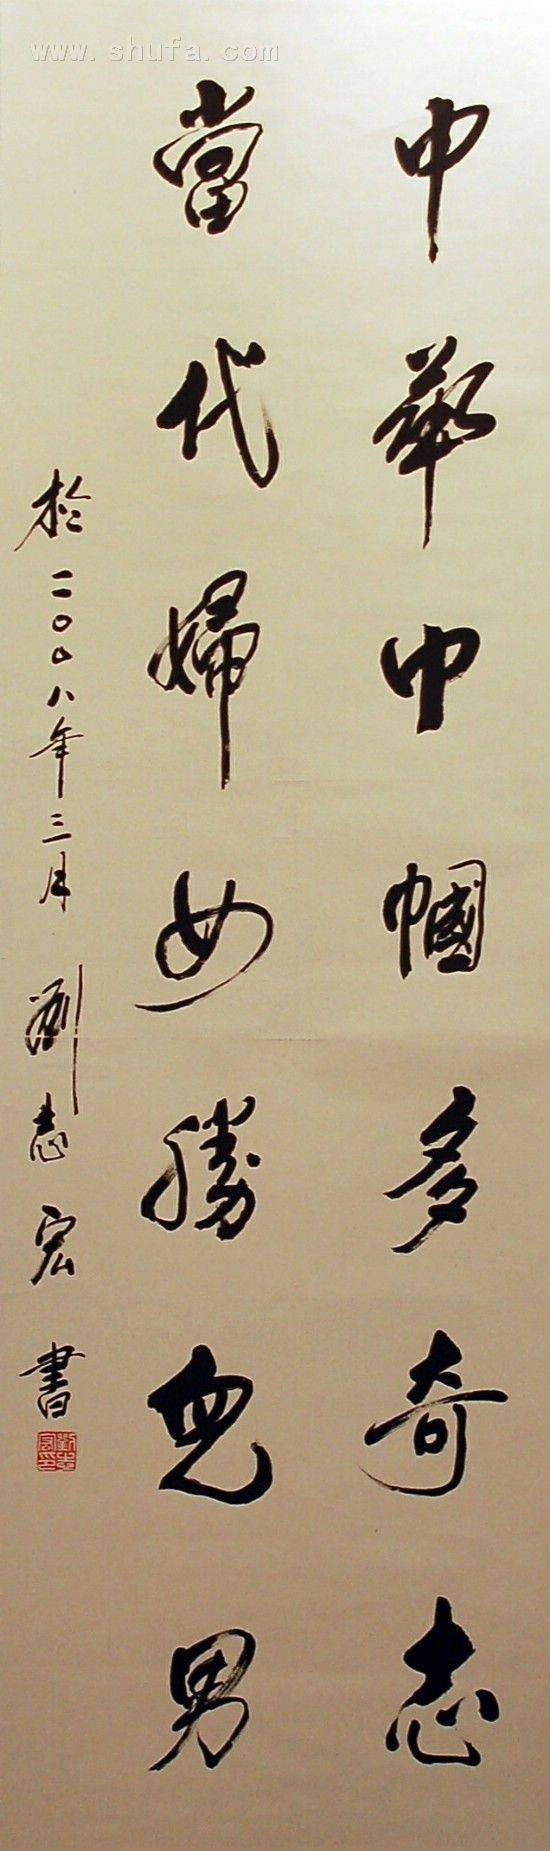 www.shufa.com
中華巾帼多奇志
當代婦女勝兒男
於二〇〇八年三月 劉志宏 書